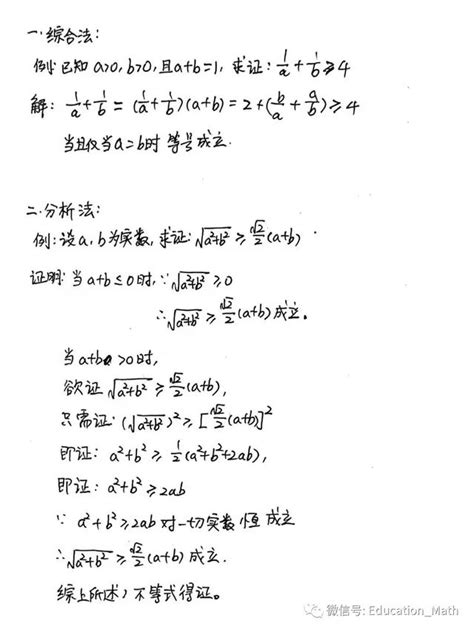 一.综合法:
例:已知 a>0, b>0, 且a+b=1, 求证: 1/a + 1/b ≥ 4
解: 1/a + 1/b = (1/a + 1/b)(a+b) = 2+(b/a + a/b) ≥ 4
当且仅当a=b时 等号成立.
二.分析法:
例:设a,b为实数,求证:√(a²+b²) ≥ √2/2(a+b).
证明:当 a+b ≤ 0时, ∵√(a²+b²) ≥ 0
∴√(a²+b²) ≥ √2/2(a+b) 成立。
当a+b>0时,
欲证√(a²+b²) ≥ √2/2(a+b),
只需证:(√(a²+b²))² ≥ [√2/2(a+b)]²
即证: a²+b² ≥ 1/2(a²+b²+2ab),
即证: a²+b² ≥ 2ab
∵ a²+b² ≥ 2ab 对一切实数 恒 成立
∴√(a²+b²) ≥ √2/2(a+b) 成立.
综上所述,不等式得证。
微信号: Education_Math